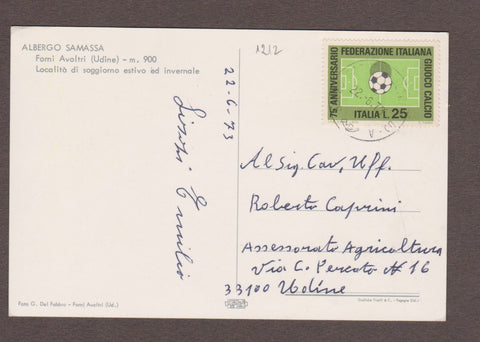 ALBERGO SAMASSA
Forni Avoltri (Udine) - m. 900
Località di soggiorno estivo ed invernale
22-6-73
Emilio
Foto G. Del Fabbro - Forni Avoltri (Ud.)
1212
75° ANNIVERSARIO
FEDERAZIONE ITALIANA
GIUOCO CALCIO
ITALIA L. 25
Al Sig. Cav. Uff.
Roberto Caprini
Assessorato Agricoltura
Via C. Percoto N 16
33100 Udine